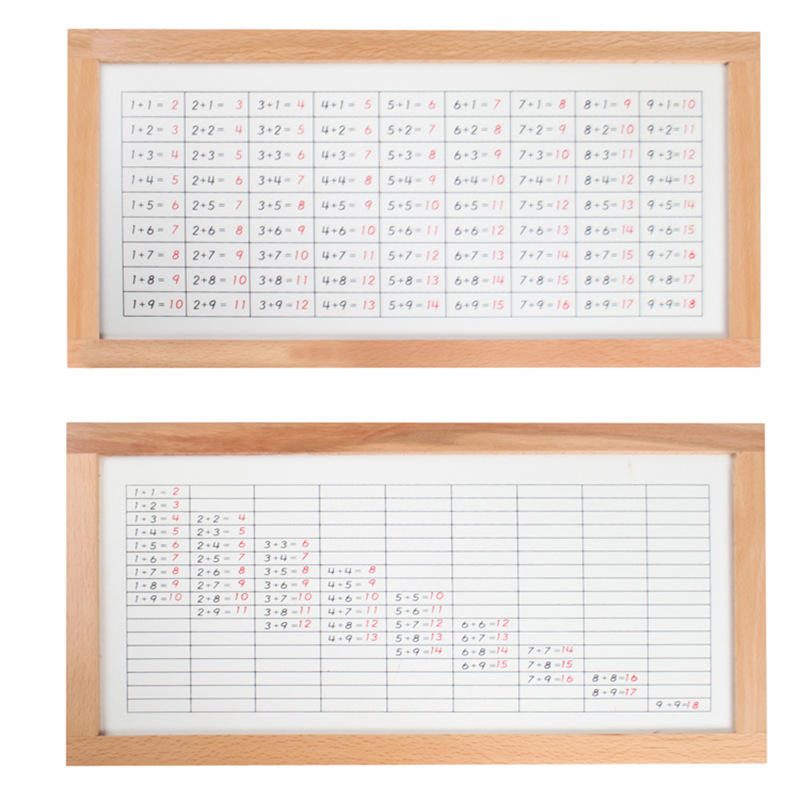 1+1= 2 2+1= 3 3+1= 4 4+1= 5 5+1= 6 6+1= 7 7+1= 8 8+1= 9 9+1=10
1+2= 3 2+2= 4 3+2= 5 4+2= 6 5+2= 7 6+2= 8 7+2= 9 8+2=10 9+2=11
1+3= 4 2+3= 5 3+3= 6 4+3= 7 5+3= 8 6+3= 9 7+3=10 8+3=11 9+3=12
1+4= 5 2+4= 6 3+4= 7 4+4= 8 5+4= 9 6+4=10 7+4=11 8+4=12 9+4=13
1+5= 6 2+5= 7 3+5= 8 4+5= 9 5+5=10 6+5=11 7+5=12 8+5=13 9+5=14
1+6= 7 2+6= 8 3+6= 9 4+6=10 5+6=11 6+6=12 7+6=13 8+6=14 9+6=15
1+7= 8 2+7= 9 3+7=10 4+7=11 5+7=12 6+7=13 7+7=14 8+7=15 9+7=16
1+8= 9 2+8=10 3+8=11 4+8=12 5+8=13 6+8=14 7+8=15 8+8=16 9+8=17
1+9=10 2+9=11 3+9=12 4+9=13 5+9=14 6+9=15 7+9=16 8+9=17 9+9=18
1+1= 2
1+2= 3
1+3= 4 2+2= 4
1+4= 5 2+3= 5
1+5= 6 2+4= 6 3+3= 6
1+6= 7 2+5= 7 3+4= 7
1+7= 8 2+6= 8 3+5= 8 4+4= 8
1+8= 9 2+7= 9 3+6= 9 4+5= 9
1+9=10 2+8=10 3+7=10 4+6=10 5+5=10
2+9=11 3+8=11 4+7=11 5+6=11
3+9=12 4+8=12 5+7=12 6+6=12
4+9=13 5+8=13 6+7=13
5+9=14 6+8=14 7+7=14
6+9=15 7+8=15
7+9=16 8+8=16
8+9=17
9+9=18